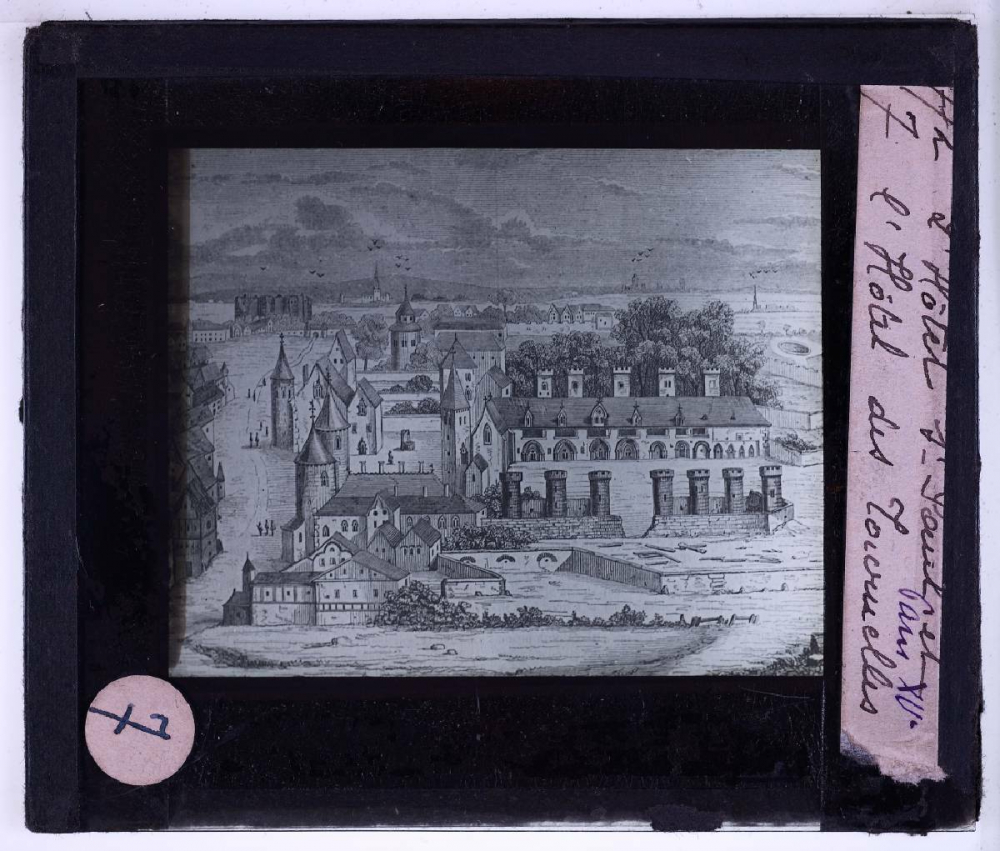 l'Hôtel St Paul et
7 l'Hôtel des Tournelles
Paris XVe
7